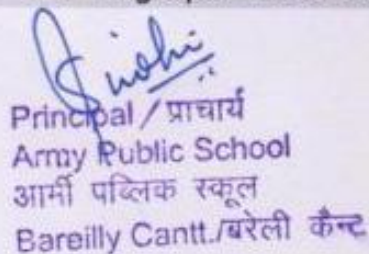 Principal / प्राचार्य
Army Public School
आर्मी पब्लिक स्कूल
Bareilly Cantt./बरेली कैन्ट